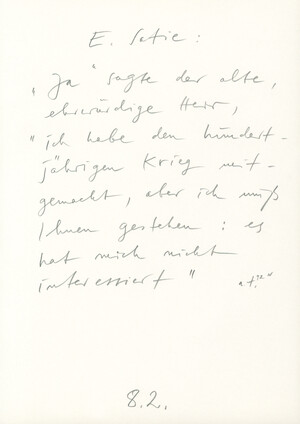 E. Satie:
„Ja" sagte der alte,
ehrwürdige Herr,
"ich habe den hundert-
jährigen Krieg mit-
gemacht, aber ich muß
Ihnen gestehen: es
hat mich nicht
interessiert"
8.2.